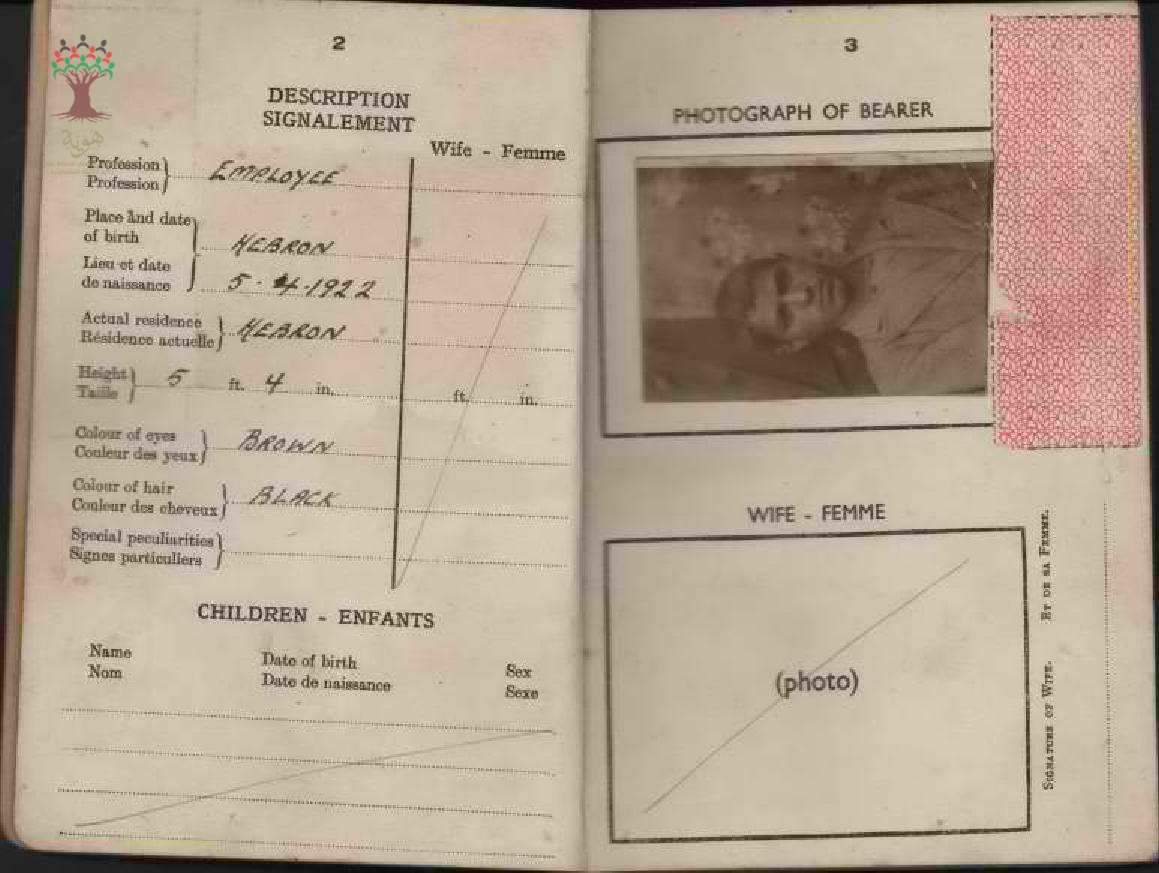 هوية
2
DESCRIPTION
SIGNALEMENT
Wife - Femme
Profession
Profession
EMPLOYEE
Place and date
of birth
Lieu et date
de naissance
HEBRON
5.4.1922
Actual residence
Résidence actuelle
HEBRON
Height
Taille
5 ft. 4 in.
ft. in.
Colour of eyes
Couleur des yeux
BROWN
Colour of hair
Couleur des cheveux
BLACK
Special peculiarities
Signes particuliers
CHILDREN - ENFANTS
Name Date of birth Sex
Nom Date de naissance Sexe
3
PHOTOGRAPH OF BEARER
WIFE - FEMME
(photo)
SIGNATURE OF WIFE. ET DE SA FEMME.